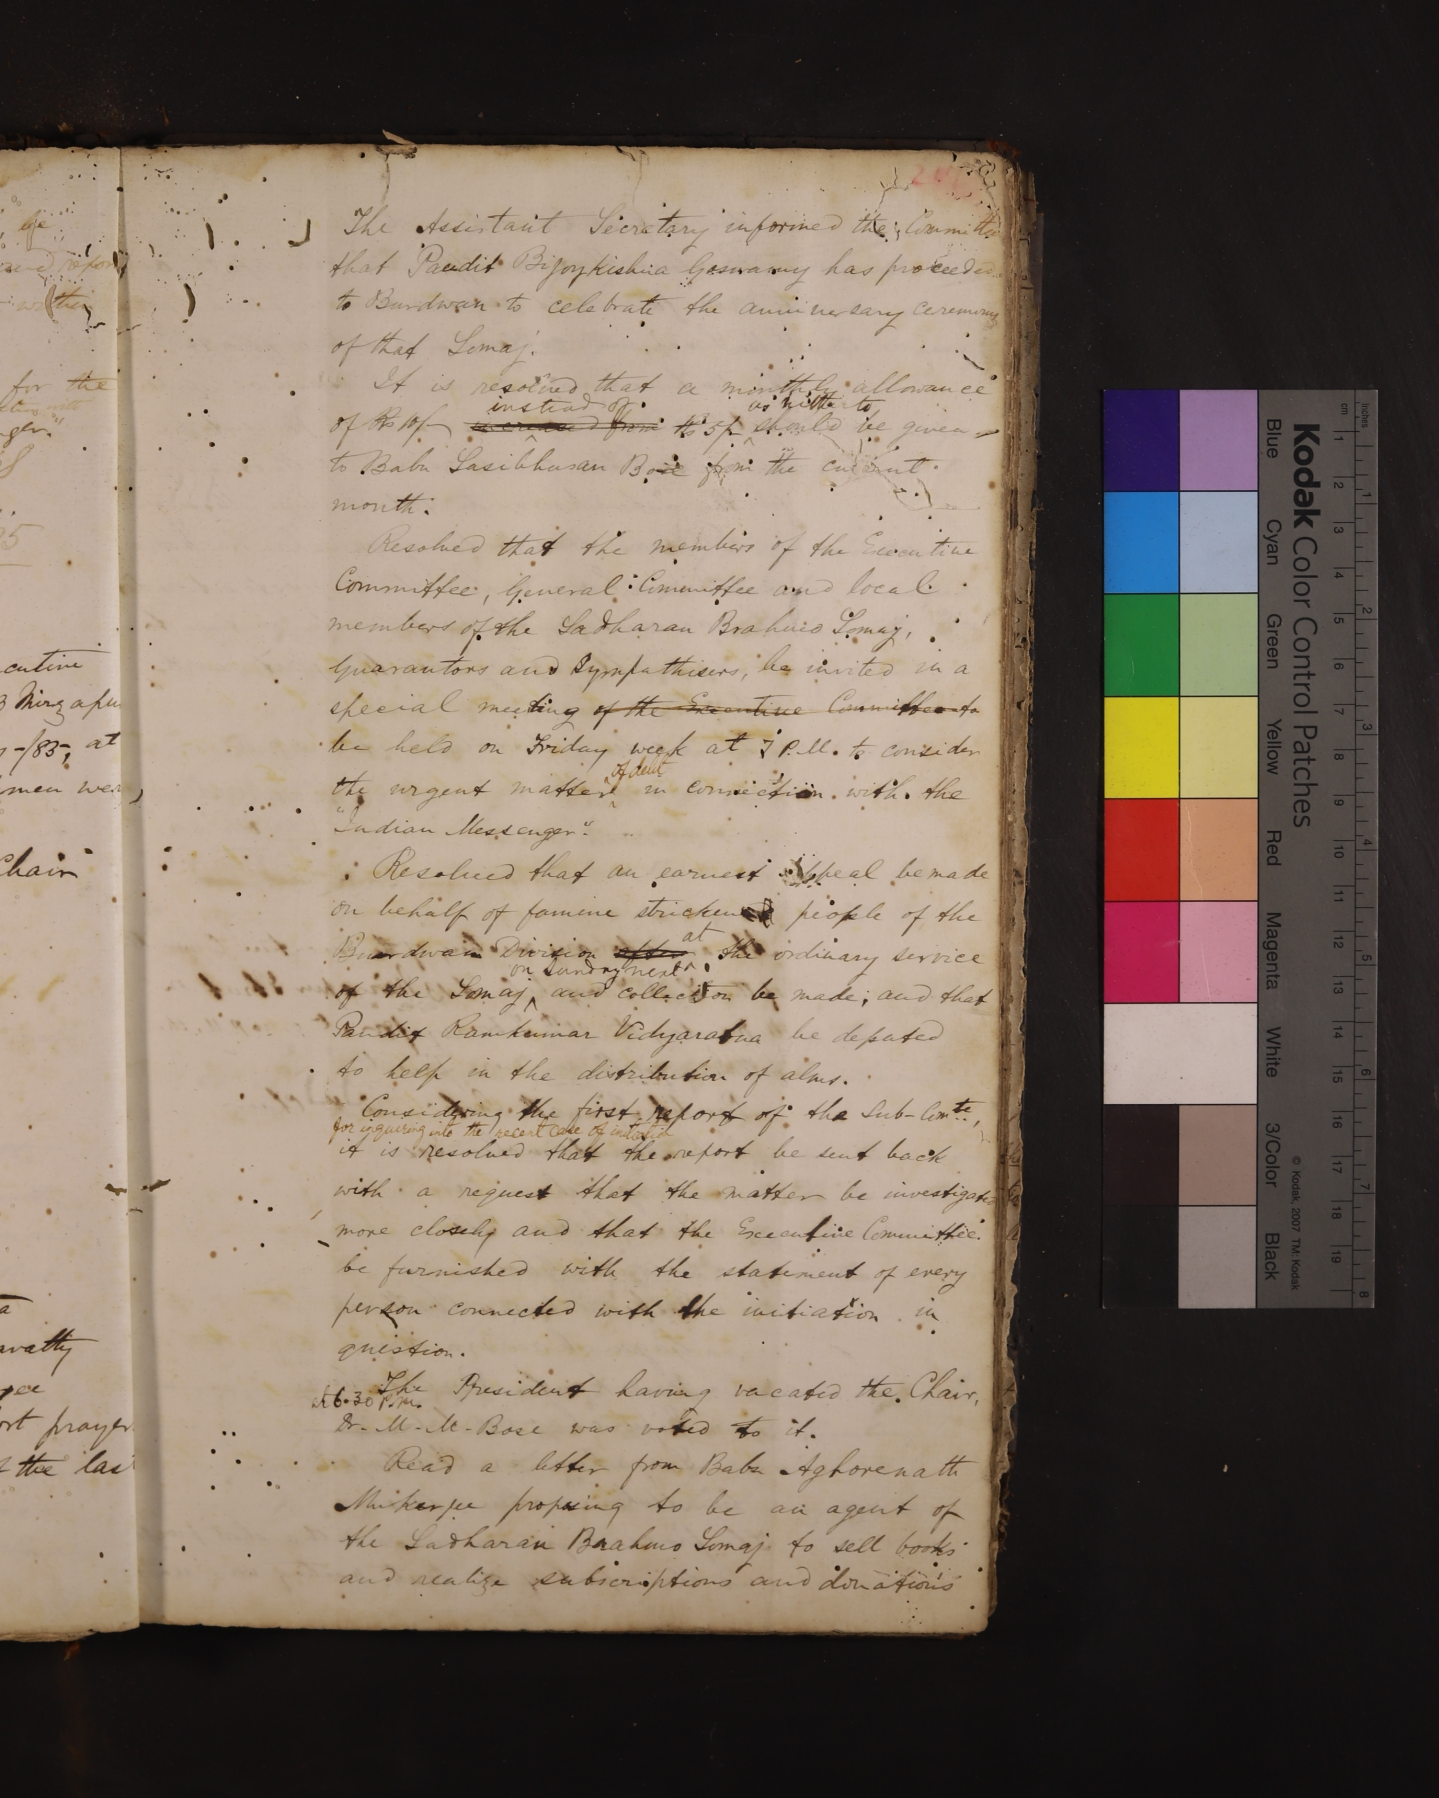 The Assistant Secretary informed the Committee
that Pandit Bijoykishna Goswamy has proceeded
to Burdwan to celebrate the anniversary ceremony
of that Somaj.
It is resolved that a monthly allowance
instead of as hitherto,
of Rs 10/- increased from Rs 5/- should be given
to Babu Sasibhusan Bose from the current
month.
Resolved that the members of the Executive
Committee, General Committee and local
members of the Sadharan Brahmo Somaj,
Guarantors and Sympathisers, be invited in a
special meeting of the Executive Committee to
be held on Friday week at 7 P.M. to consider
of debt
the urgent matter in connection with the
"Indian Messenger".
Resolved that an earnest appeal be made
on behalf of famine stricken people of the
at
Burdwan Division after the ordinary service
on Sunday next
of the Somaj, and collection be made; and that
Pandit Ramkumar Vidyaratna be deputed
to help in the distribution of alms.
Considering the first report of the Sub-Comte,
for inquiring into the recent case of initiation
it is resolved that the report be sent back
with a request that the matter be investigated
more closely and that the Executive Committee
be furnished with the statement of every
person connected with the initiation in
question.
The President having vacated the Chair,
at 6.30 P.M.
Dr. M. M. Bose was voted to it.
Read a letter from Babu Aghorenath
Mukerjee proposing to be an agent of
the Sadharan Brahmo Somaj to sell books
and realize subscriptions and donations
for the
cutive
Mirzapu
/85, at
men wer
Chair
ort prayer
the las
Kodak Color Control Patches
Blue Cyan Green Yellow Red Magenta White 3/Color Black
© Kodak, 2007 TM: Kodak
cm 1 2 3 4 5 6 7 8 9 10 11 12 13 14 15 16 17 18 19
inches 1 2 3 4 5 6 7 8